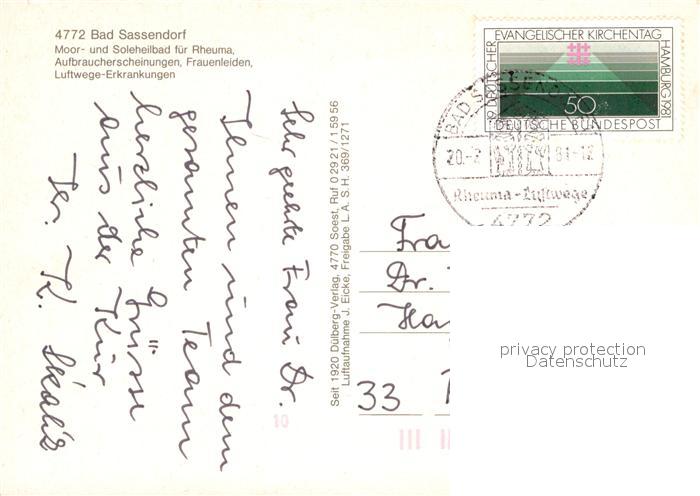 4772 Bad Sassendorf
Moor- und Soleheilbad für Rheuma,
Aufbraucherscheinungen, Frauenleiden,
Luftwege-Erkrankungen
19. DEUTSCHER EVANGELISCHER KIRCHENTAG HAMBURG 1981
50
DEUTSCHE BUNDESPOST
BAD SASSEN
20.-7 81-12
Rheuma-Luftwege
4772
Sehr geehrte Frau Dr.
Ihnen und dem
gesamten Team
herzliche Grüsse
aus der Kur
K. Skalik
Seit 1920 Dülberg-Verlag, 4770 Soest, Ruf 0 29 21 / 1 59 56
Luftaufnahme J. Eicke, Freigabe L. A. S. H. 369/1271
Fra
Dr.
Ha
33
10
privacy protection
Datenschutz